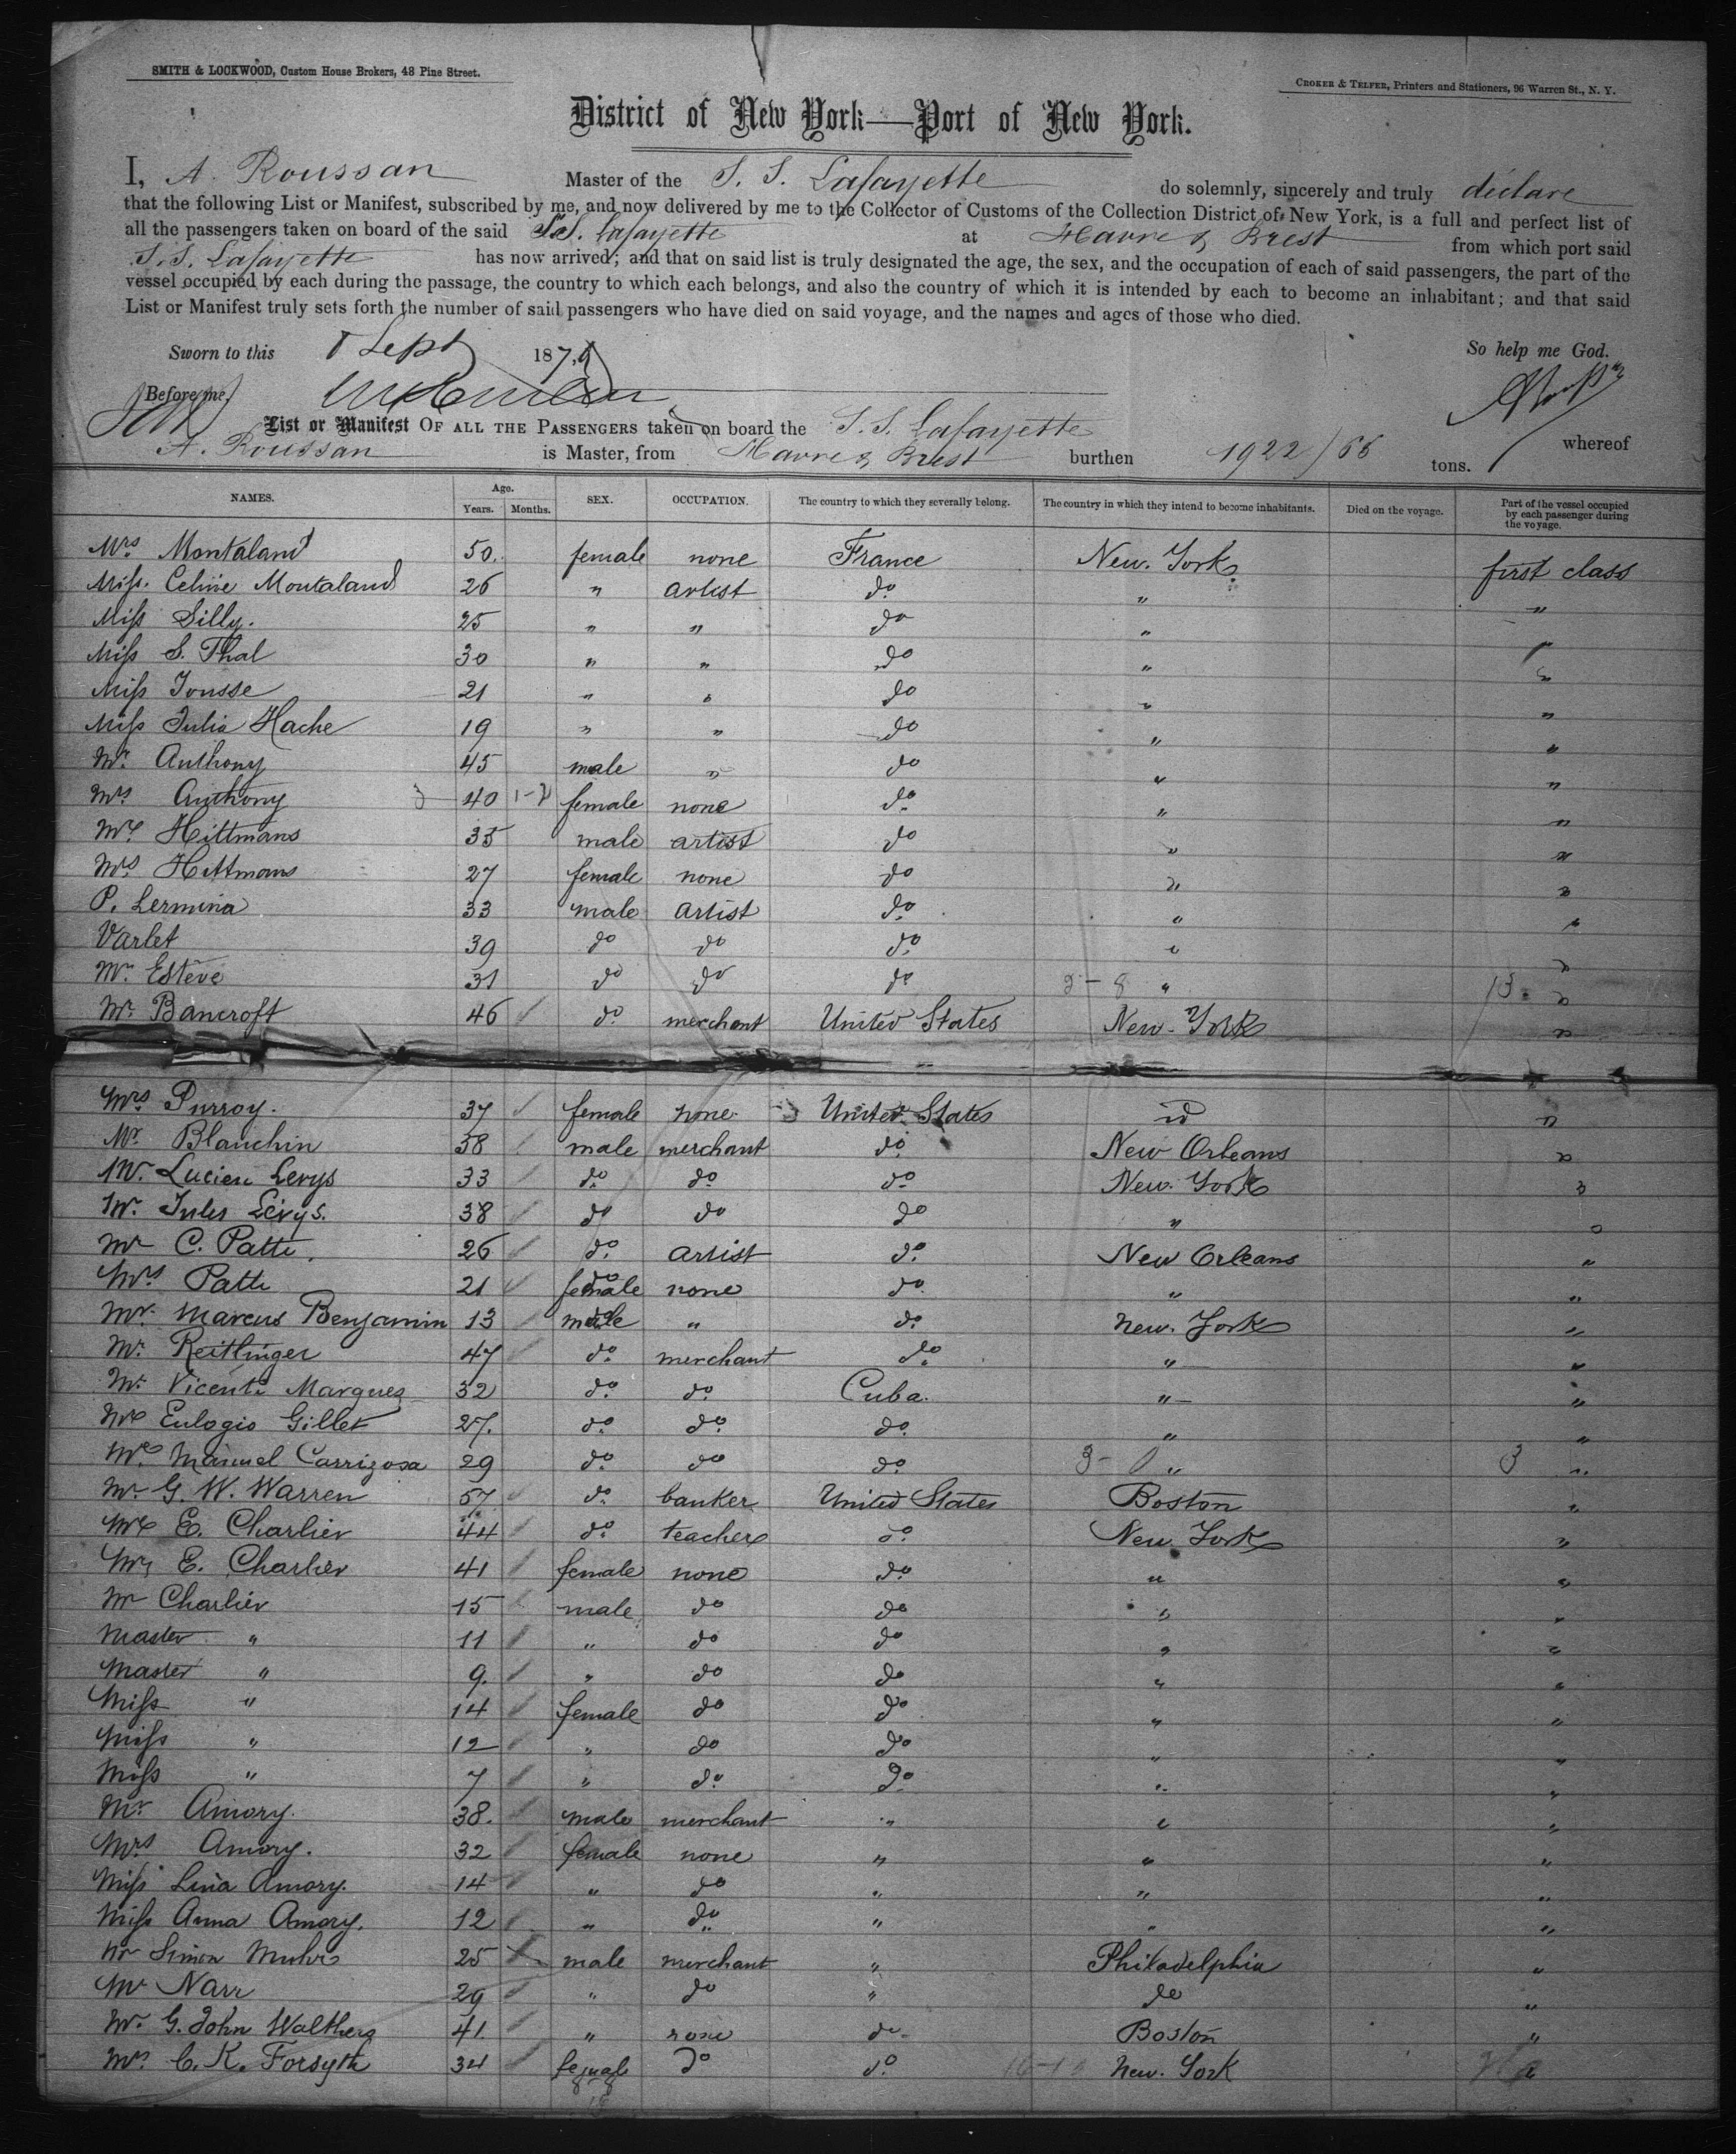 SMITH & LOCKWOOD, Custom House Brokers, 48 Pine Street.
CROKER & TELFER, Printers and Stationers, 96 Warren St., N. Y.
District of New York—Port of New York.
I, A. Roussan Master of the S. S. Lafayette do solemnly, sincerely and truly declare
that the following List or Manifest, subscribed by me, and now delivered by me to the Collector of Customs of the Collection District of New York, is a full and perfect list of
all the passengers taken on board of the said S.S. Lafayette at Havre & Brest from which port said
S.S. Lafayette has now arrived; and that on said list is truly designated the age, the sex, and the occupation of each of said passengers, the part of the
vessel occupied by each during the passage, the country to which each belongs, and also the country of which it is intended by each to become an inhabitant; and that said
List or Manifest truly sets forth the number of said passengers who have died on said voyage, and the names and ages of those who died.
Sworn to this 8 Sept 187 So help me God.
Before me,
List or Manifest OF ALL THE PASSENGERS taken on board the S. S. Lafayette whereof
A. Roussan is Master, from Havre & Brest burthen 1922/66 tons.
NAMES. Age. Years. Months. SEX. OCCUPATION. The country to which they severally belong. The country in which they intend to become inhabitants. Died on the voyage. Part of the vessel occupied by each passenger during the voyage.
Mrs Montaland 50. female none France New. York first class
Miss. Celine Montaland 26 " artist do " "
Miss Silly. 25 " " do " "
Miss S. Thal 30 " " do " "
Miss Jousse 21 " " do " "
Miss Julia Hache 19 " " do " "
Mr. Anthony 45 male " do " "
Mrs Anthony 40 female none do " "
Mr Hittmans 35 male artist do " "
Mrs Hittmans 27 female none do " "
P. Lermina 33 male artist do " "
Varlet 39 do do do " "
Mr. Estève 31 do do do " "
Mr. Bancroft 46 do merchant United States New-York "
Mrs Purroy. 37 female none United States id "
Mr. Blanchin 38 male merchant do New Orleans "
Mr. Lucien Levys 33 do do do New. York "
Mr. Jules Levys. 38 do do do " "
Mr C. Patti 26 do artist do New Orleans "
Mrs Patti 21 female none do " "
Mr. Marcus Benjamin 13 male " do New. York "
Mr. Reitlinger 47 do merchant do " "
Mr. Vicente Marques 32 do do Cuba. " "
Mr Eulogio Gillet 27. do do do " "
Mr. Manuel Carrizosa 29 do do do " "
Mr G. W. Warren 57 do banker United States Boston "
Mr E. Charlier 44 do teacher do New York "
Mrs E. Charlier 41 female none do " "
Mr Charlier 15 male do do " "
Master " 11 " do do " "
Master " 9. " do do " "
Miss " 14 female do do " "
Miss " 12 " do do " "
Miss " 7 " do do " "
Mr. Amory. 38. male merchant " " "
Mrs Amory. 32 female none " " "
Miss Lina Amory. 14 " do " " "
Miss Anna Amory. 12 " do " " "
Mr Simon Muhr 25 male merchant " Philadelphia "
Mr Narr 29 " do " do "
Mr. G. John Walther 41 " none do Boston "
Mrs C. K. Forsyth 34 female do do New. York "